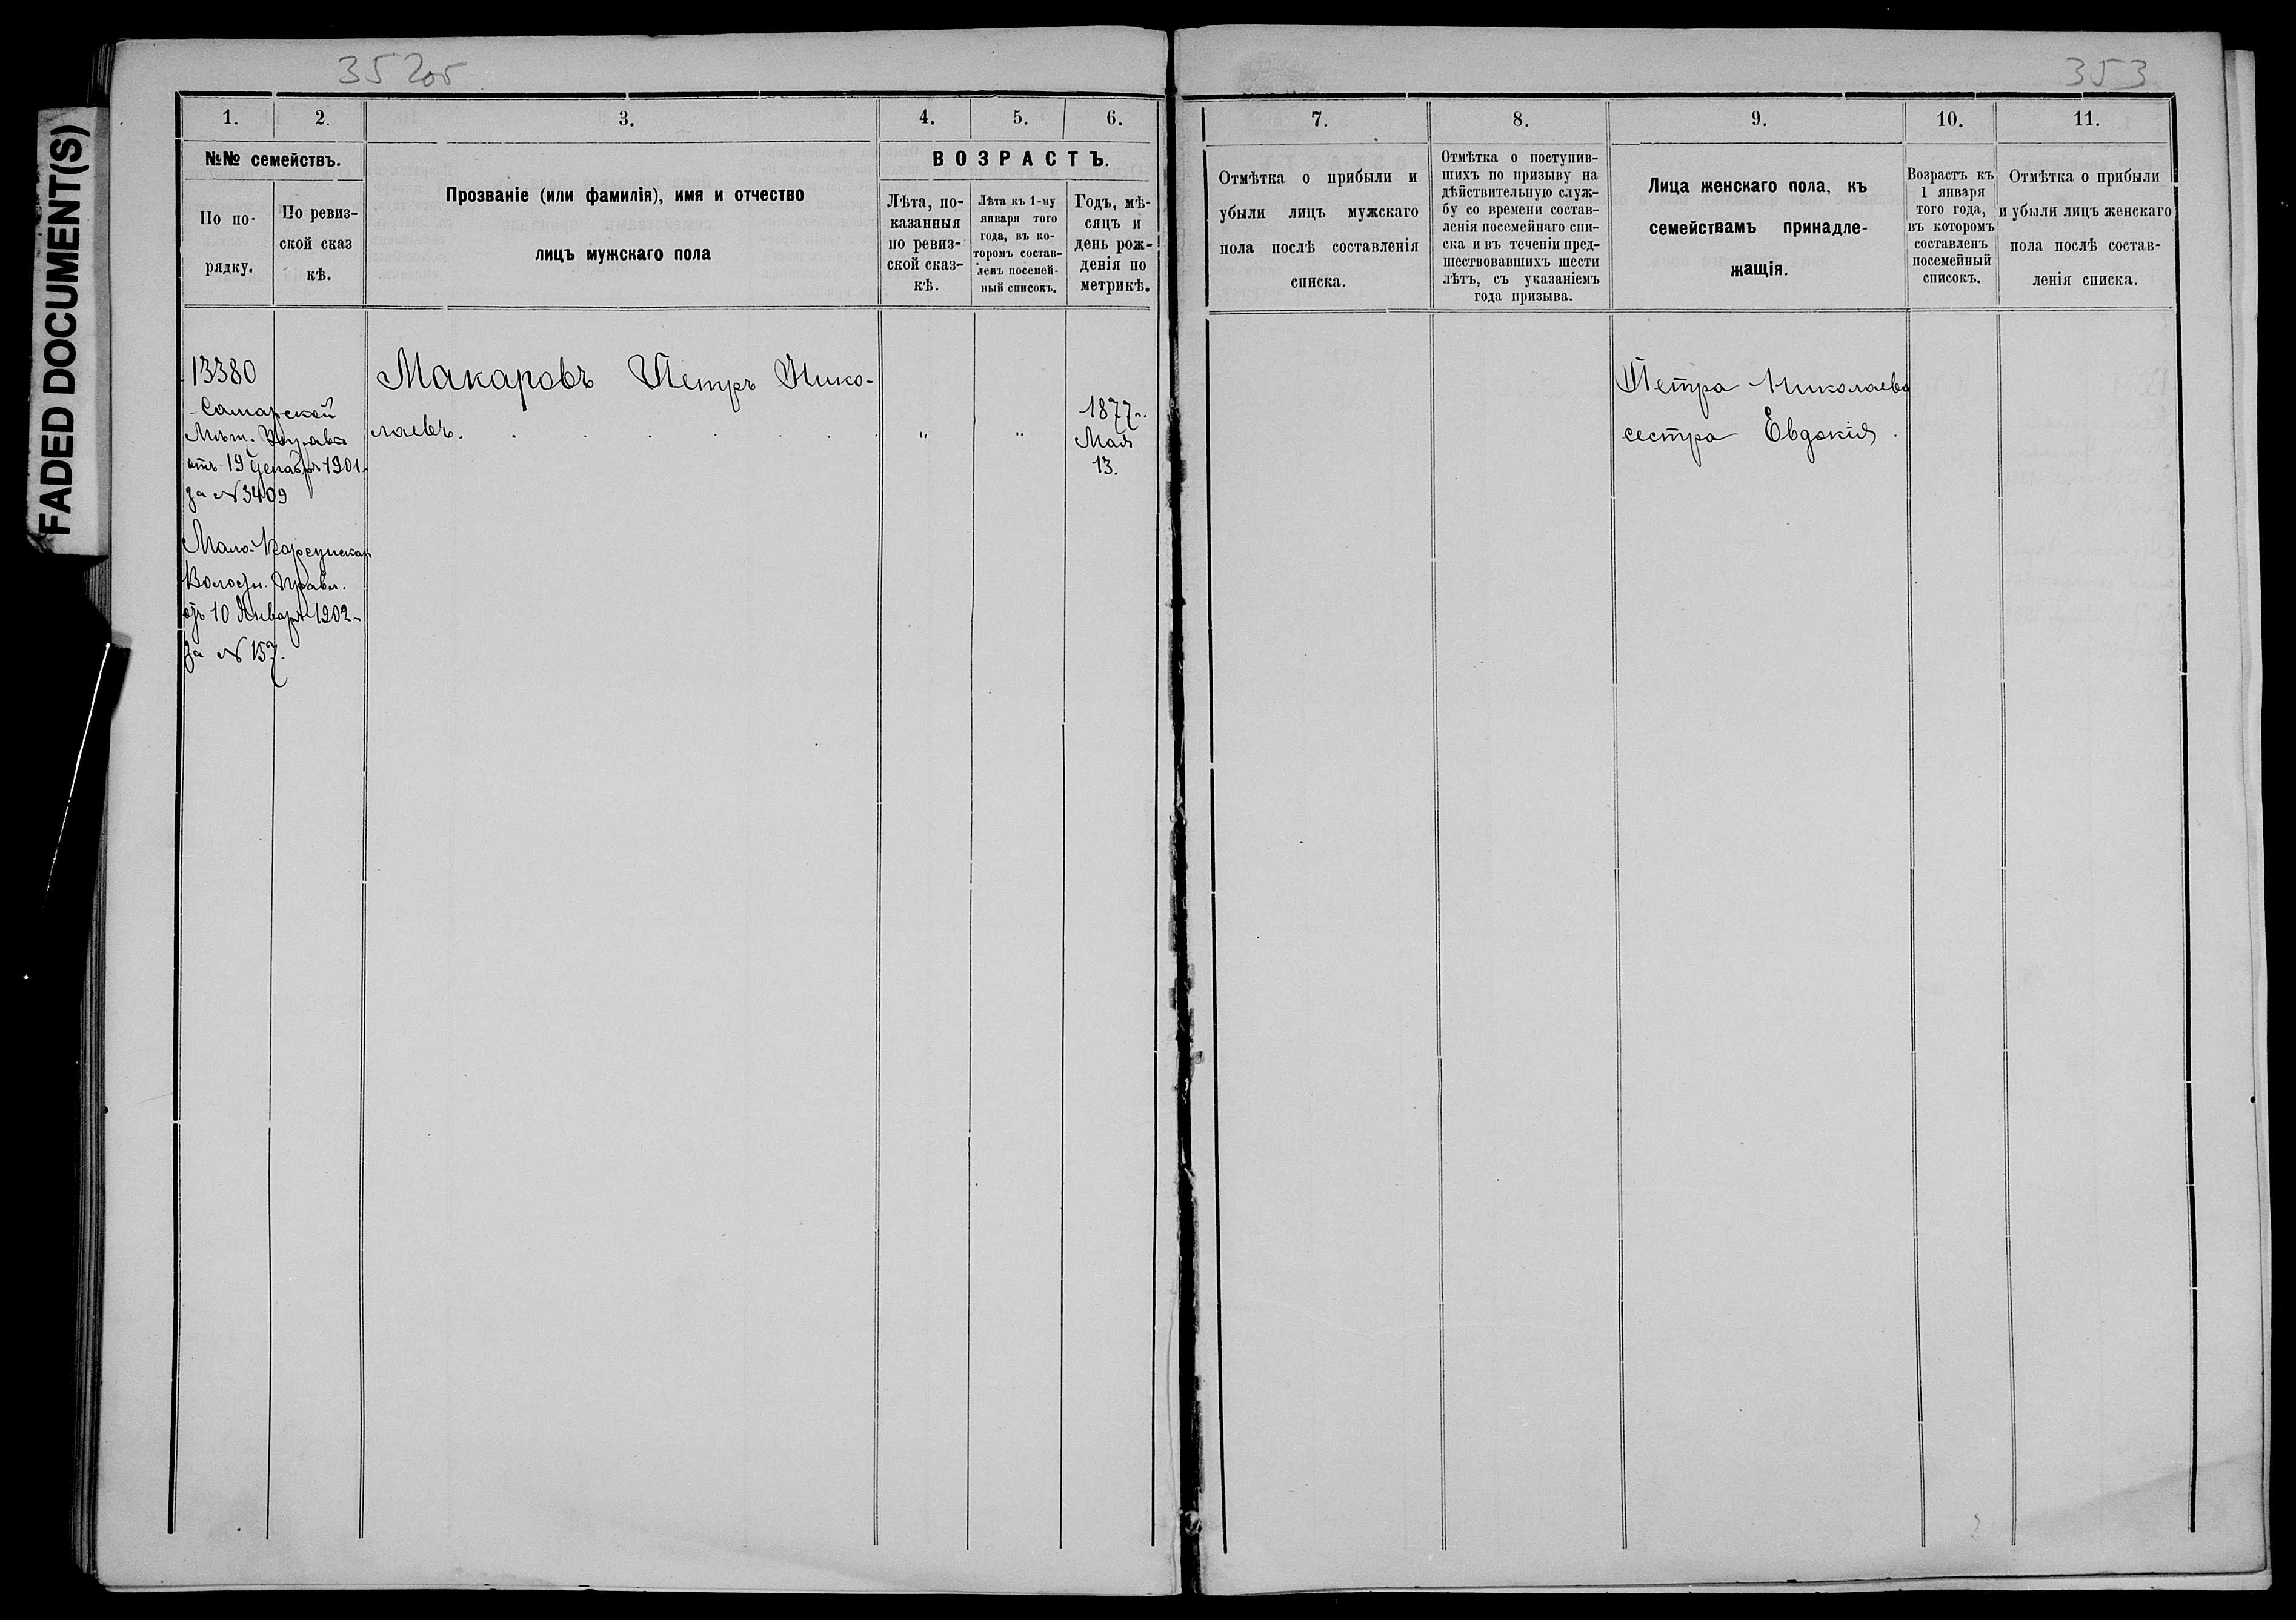 FADED DOCUMENT(S)
352об
1.
2.
3.
4.
5.
6.
№№ семействъ.
По по-
рядку.
По ревиз-
ской сказ
кѣ.
Прозваніе (или фамилія), имя и отчество
лицъ мужскаго пола
ВОЗРАСТЪ.
Лѣта, по-
казанныя
по ревиз-
ской сказ-
кѣ.
Лѣта къ 1-му
января того
года, въ ко-
торомъ состав-
ленъ посемей-
ный списокъ.
Годъ, мѣ-
сяцъ и
день рож-
денія по
метрикѣ.
13380
Самарской
Мѣщ. Управы
отъ 19 Декабря 1901
за № 3409
Мало-Карсунскаго
Волостн. Правл.
отъ 10 Января 1902
за № 157.
Макаровъ Петръ Нико-
лаевъ. . . . . . .
"
"
1877 г.
Мая
13.
353
7.
8.
9.
10.
11.
Отмѣтка о прибыли и
убыли лицъ мужскаго
пола послѣ составленія
списка.
Отмѣтка о поступив-
шихъ по призыву на
дѣйствительную служ-
бу со времени состав-
ленія посемейнаго спи-
ска и въ теченіи пред-
шествовавшихъ шести
лѣтъ, съ указаніемъ
года призыва.
Лица женскаго пола, къ
семействамъ принадле-
жащія.
Возрастъ къ
1 января
того года,
въ которомъ
составленъ
посемейный
списокъ.
Отмѣтка о прибыли
и убыли лицъ женскаго
пола послѣ состав-
ленія списка.
Петра Николаева
сестра Евдокія.